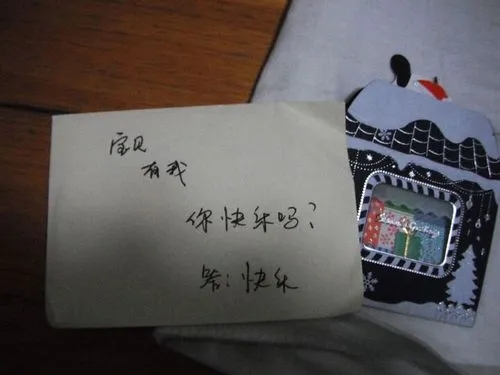 宝贝
有我
你快乐吗?
答:快乐